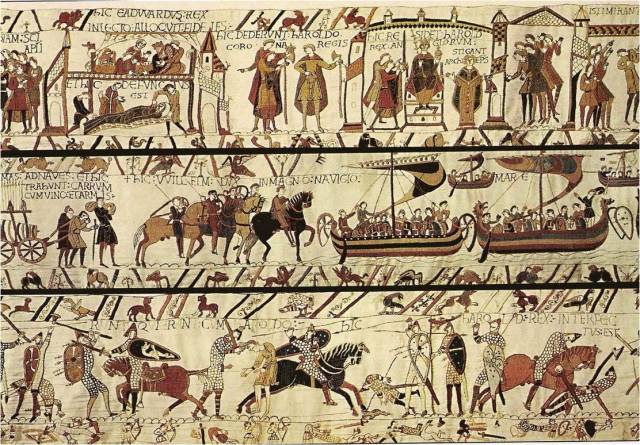 HIC EADVVARDUS: REX
IN LECTO: ALLOQUIT: FIDELES:
ET HIC: DEFUNCTUS
EST
HIC DEDERUNT: HAROLDO:
CORONA REGIS
HIC RE SIDET: HAROLD
REX: ANGLORUM:
STIGANT
ARCHIEPS
ISTI MIRANT
AD NAVES: ET HIC
TRAHUNT: CARRUM
CUM VINO: ET ARMIS:
HIC: VVILLELM: DUX IN MAGNO: NAVIGIO:
MARE
HIC
HAROLD: REX: INTERFEC
TUS: EST